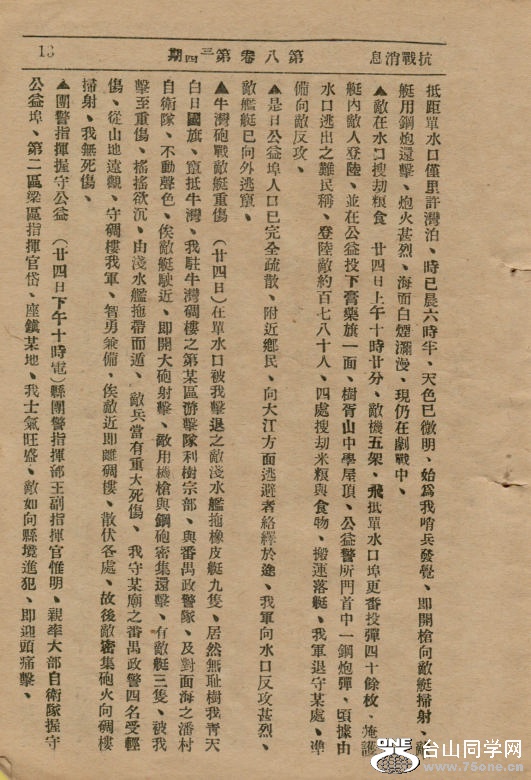 抗戰消息
第八卷第三四期
13
抵距單水口僅里許灣泊、時已晨六時半、天色已微明、始爲我哨兵發覺、即開槍向敵艇掃射、敵
艇用鋼炮還擊、炮火甚烈、海面白煙瀰漫、現仍在劇戰中、
▲敵在水口搜劫粮食 廿四日上午十時廿分、敵機五架、飛抵單水口埠更番投彈四十餘枚、掩護
艇內敵人登陸、並在公益投下膏藥旗一面、樹胥山中學屋頂、公益警所門首中一鋼炮彈、頃據由
水口逃出之難民稱、登陸敵約百七八十人、四處搜劫米粮與食物、搬運落艇、我軍退守某處、準
備向敵反攻、
▲是日公益埠人口已完全疏散、附近鄉民、向大江方面逃避者絡繹於途、我軍向水口反攻甚烈、
敵艦艇已向外逃竄、
▲牛灣砲戰敵艇重傷 (廿四日)在單水口被我擊退之敵淺水艦拖橡皮艇九隻、居然無耻樹我青天
白日國旗、竄抵牛灣、我駐牛灣碉樓之第某區游擊隊利樹宗部、與番禺政警隊、及對面海之潘村
自衛隊、不動聲色、俟敵艇駛近、即開大砲射擊、敵用機槍與鋼砲密集還擊、有敵艇三隻、被我
擊至重傷、搖搖欲沉、由淺水艦拖帶而遁、敵兵當有重大死傷、我守某廟之番禺政警四名受輕
傷、從山地遠觀、守碉樓我軍、智勇兼備、俟敵近即離碉樓、散伏各處、故後敵密集砲火向碉樓
掃射、我無死傷、
▲團警指揮握守公益 (廿四日下午十時電)縣團警指揮部王副指揮官惟明、親率大部自衛隊握守
公益埠、第二區梁區指揮官岱、座鎮某地、我士氣旺盛、敵如向縣境進犯、即迎頭痛擊、
ONE
台山同学网
www.75one.cn